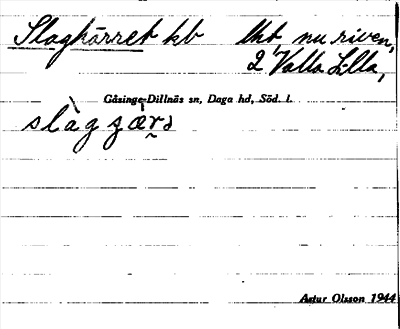 Slagkärret kb lht, nu riven,
2 Valla Lilla,
Gåsinge-Dillnäs sn, Daga hd, Söd. l.
Astur Olsson 1944